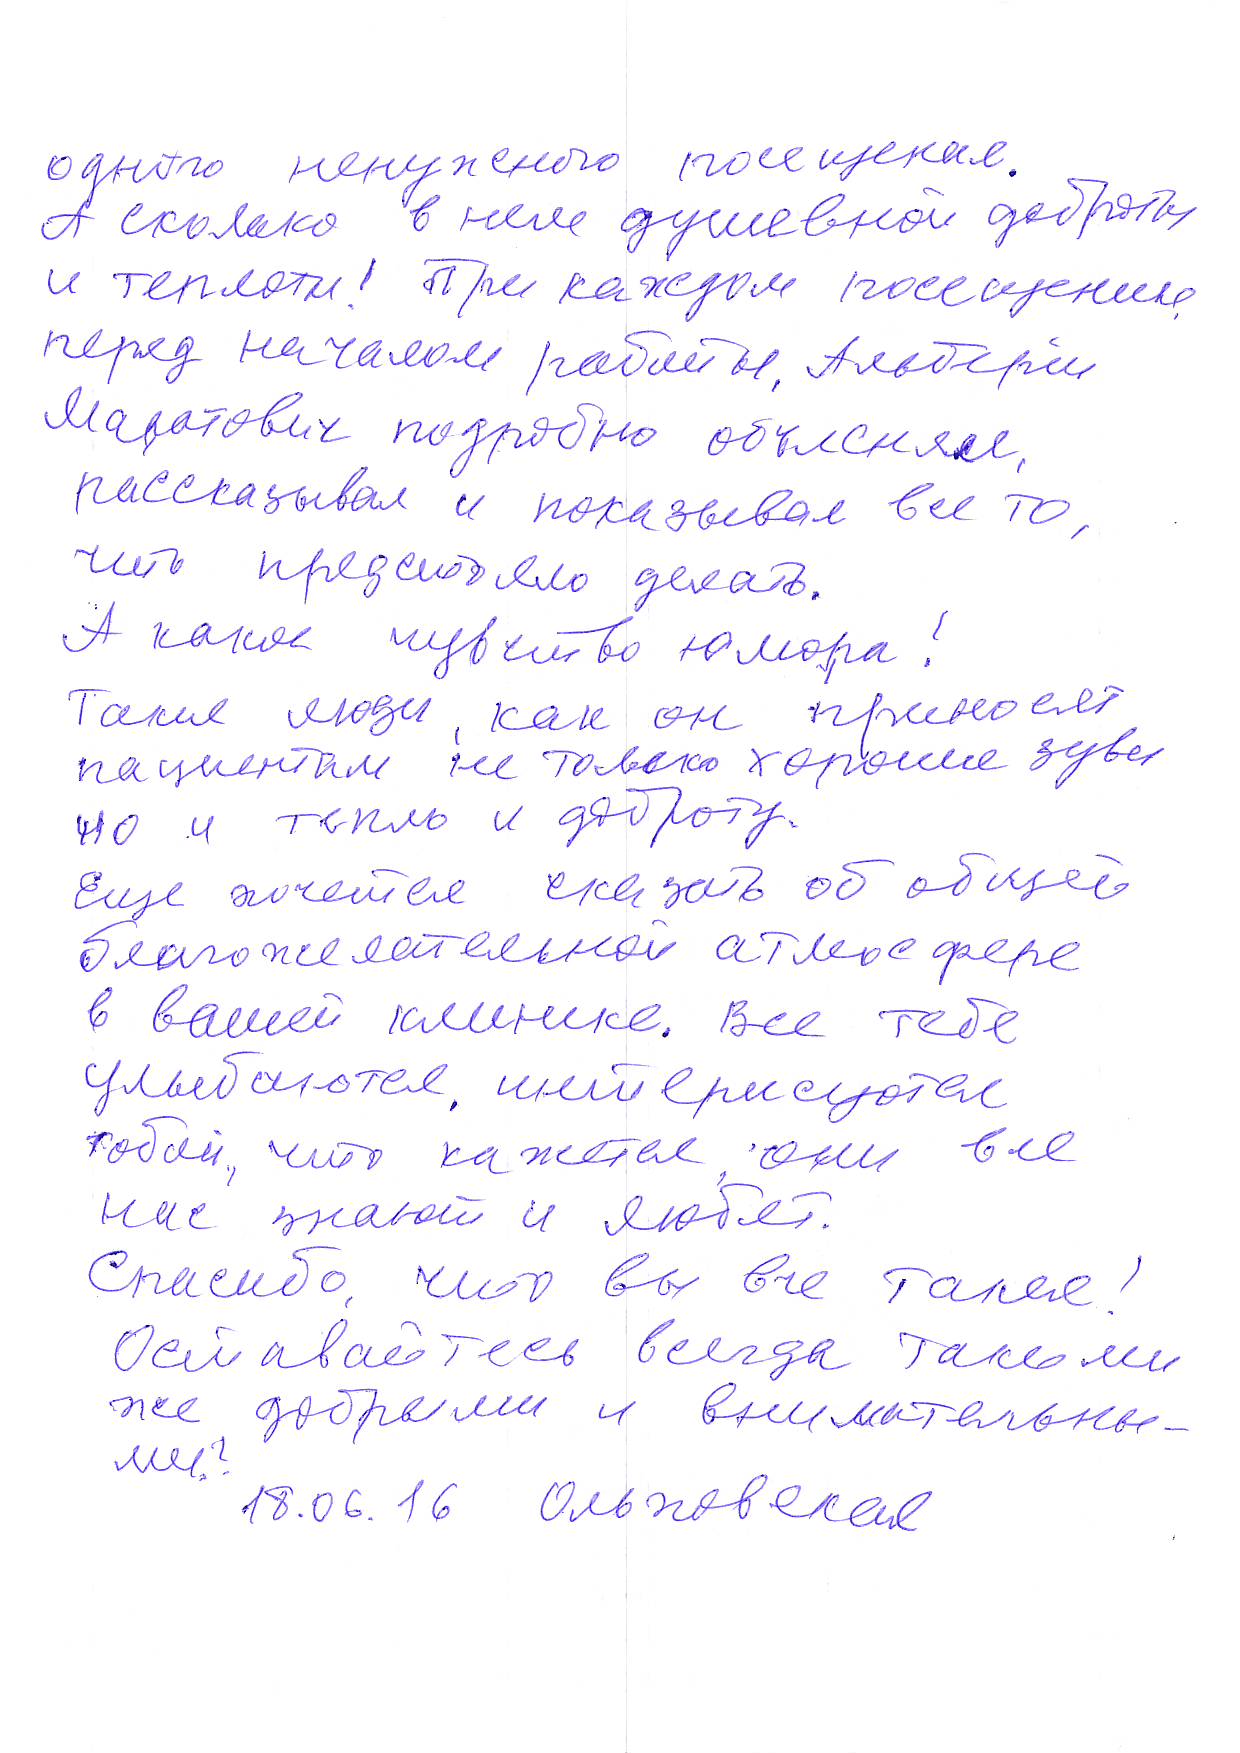 одного ненужного посещения.
А сколько в нем душевной доброты
и теплоты! При каждом посещении,
перед началом работы, Альберт
Маратович подробно объяснял,
рассказывал и показывал все то,
что предстояло делать.
А какое чувство юмора!
Такие люди, как он приносят
пациентам не только хорошие зубы
но и тепло и доброту.
Еще хочется сказать об общей
благожелательной атмосфере
в вашей клинике. Все тебе
улыбаются, интерисуются
тобой, что кажется, они все
нас знают и любят.
Спасибо, что вы все такие!
Оставайтесь всегда такими
же добрыми и внимательны-
ми!
18.06.16 Ольховская